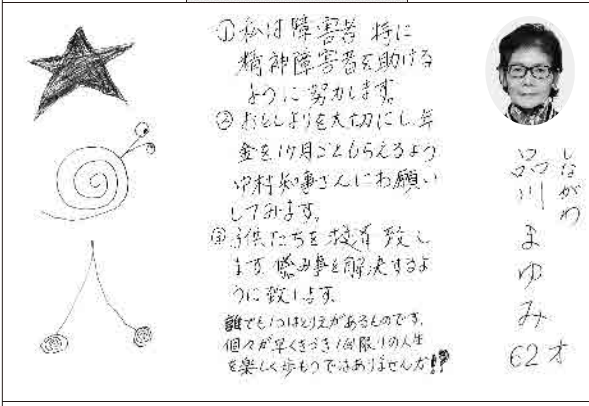 ①私は障害者 特に
精神障害者を助ける
ように努力します。
②おとしよりを大切にし、年
金を1ヶ月ごともらえるよう
中村知事さんにお願い
してみます。
③子供たちを 致し
ます。悩み事を解決するよ
うに致します。
誰でも1つはとりえがあるものです。
個々が早くきづき1回限りの人生
を楽しく歩もうではありませんか!!
しながわ
品川まゆみ
62才